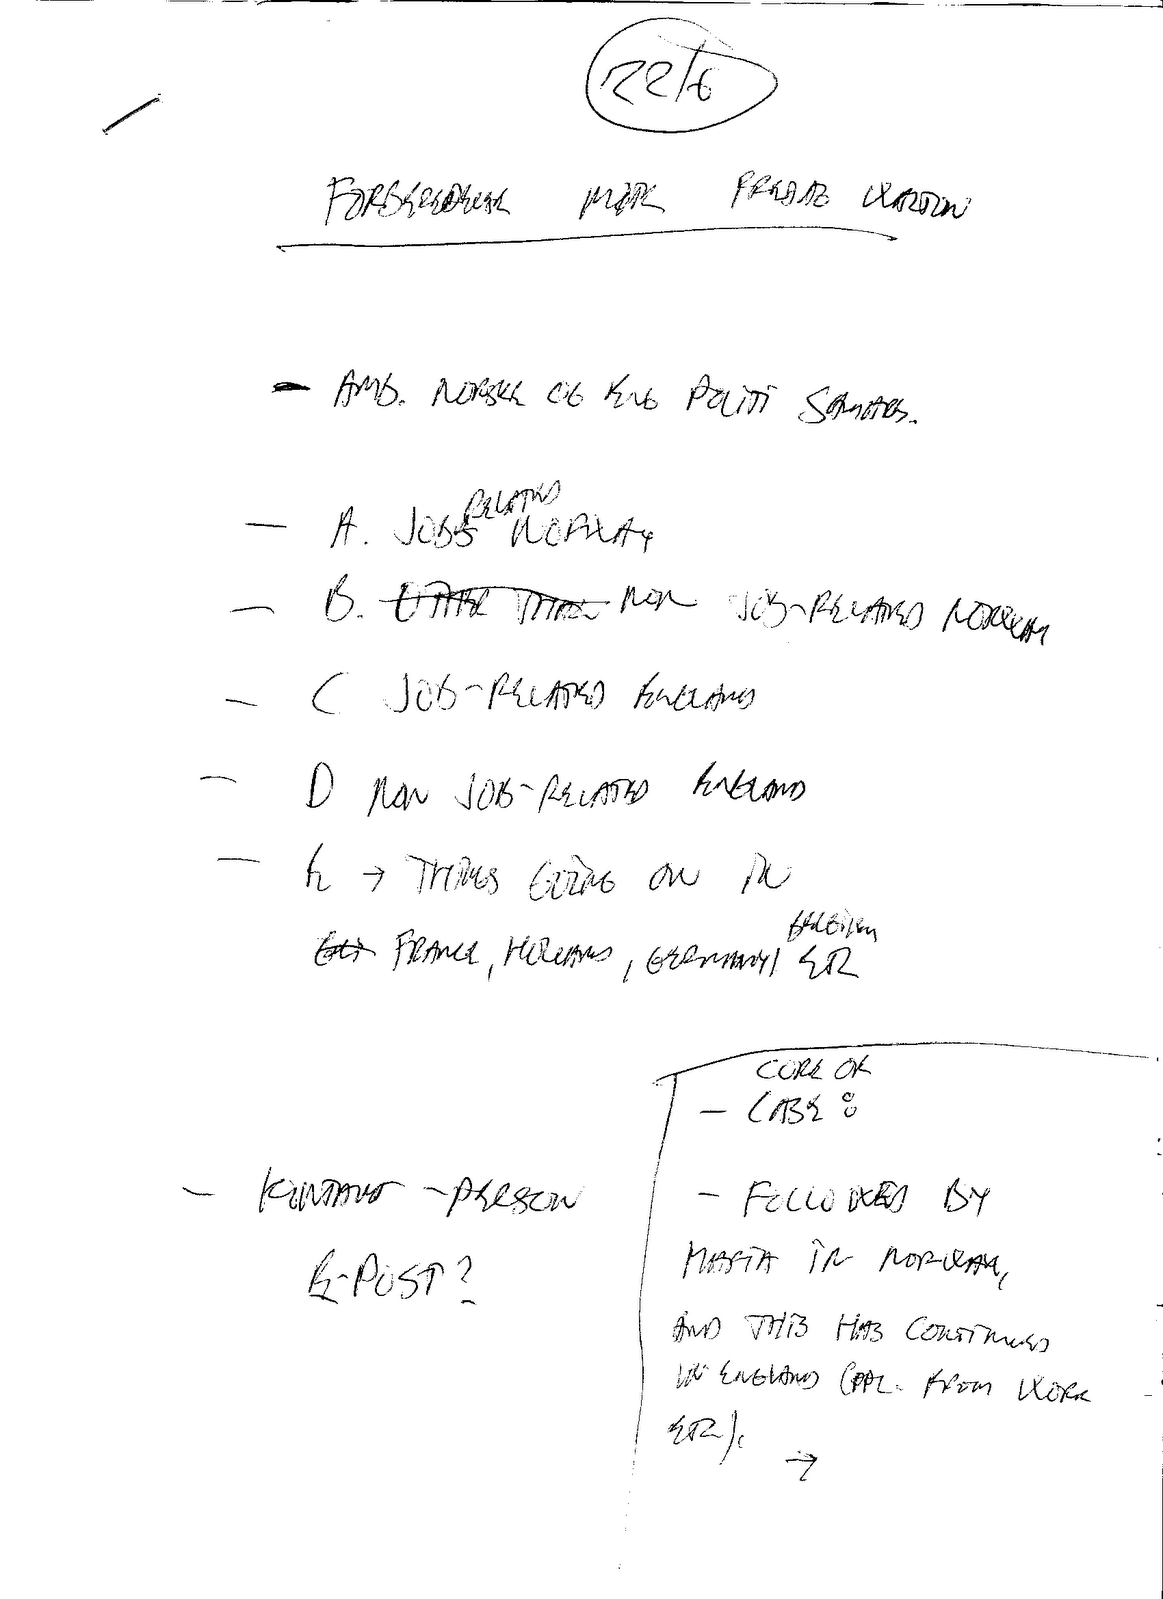 22/6
FORBEREDELSE MØTE
- AMB. NORSKE OG ENG POLITI
- A. JOBB RELATED NORWAY
- B. OTHER THAN NON JOB-RELATED NORWAY
- C JOB-RELATED ENGLAND
- D NON JOB-RELATED ENGLAND
- E → THINGS GOING ON IN
FRANCE, HOLLAND, GERMANY, BELGIUM ETC
- KONTAKT-PERSON
E-POST?
CORE OF
- CASE:
- FOLLOWED BY
MAFIA IN NORWAY,
AND THIS HAS CONTINUED
IN ENGLAND ( FROM WORK
ETC).
→